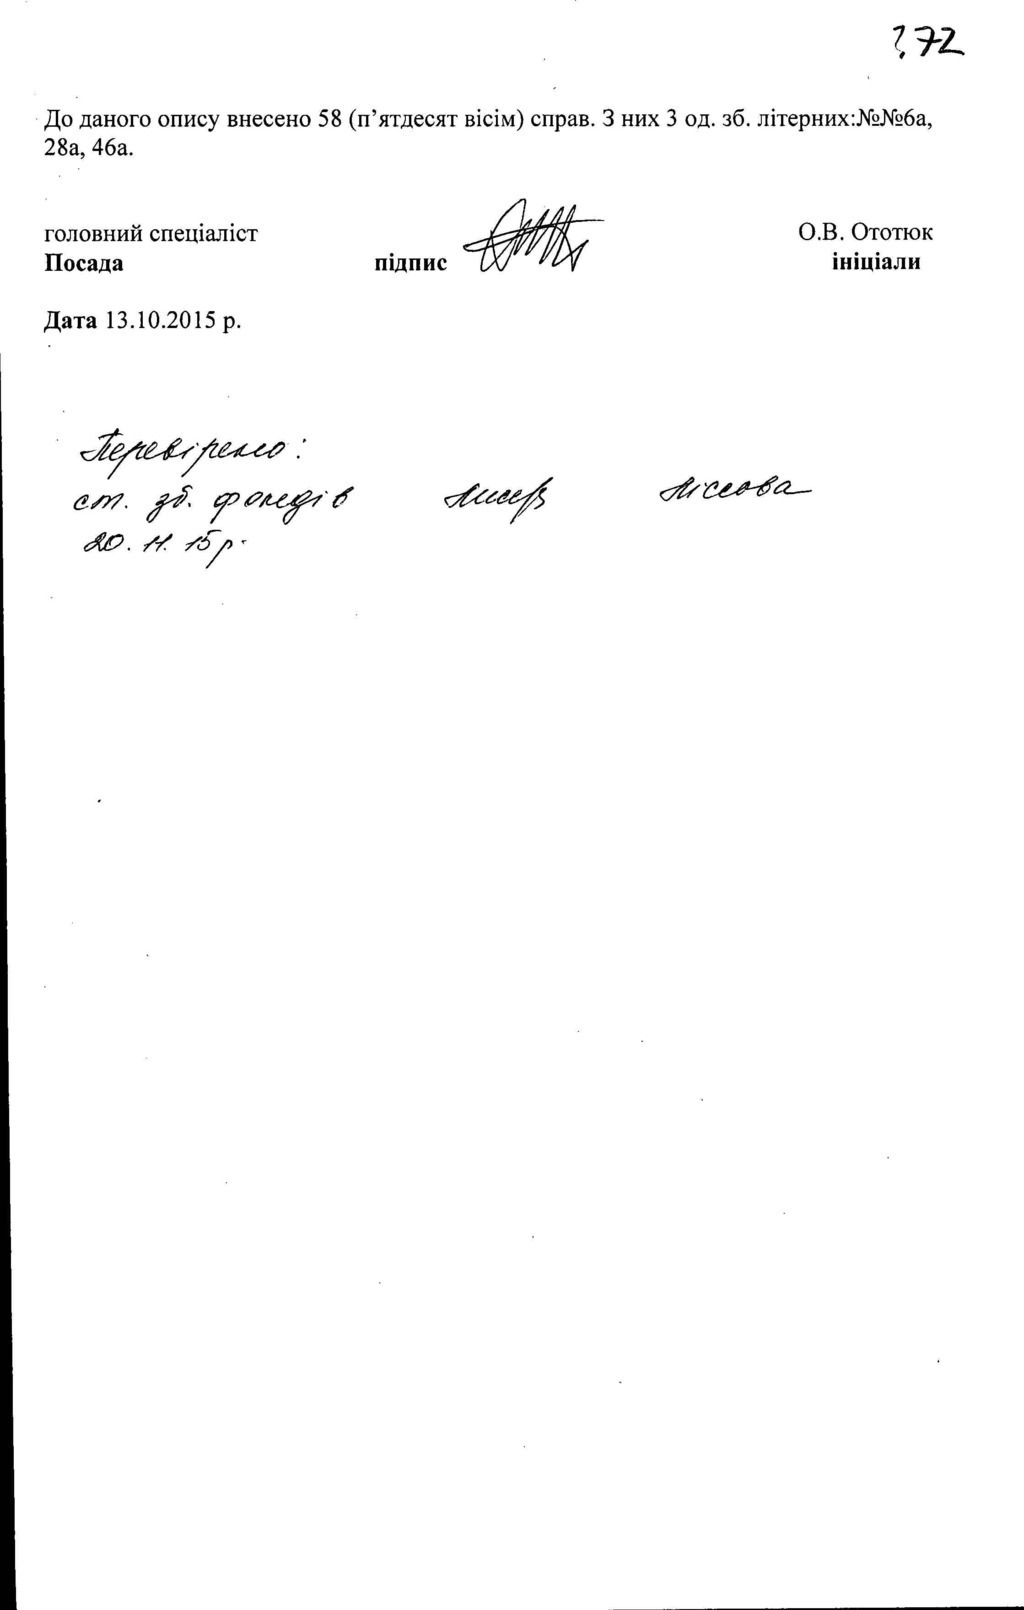 372
До даного опису внесено 58 (п’ятдесят вісім) справ. З них 3 од. зб. літерних:№№6а,
28а, 46а.
головний спеціаліст О.В. Ототюк
Посада підпис ініціали
Дата 13.10.2015 р.
Перевірено:
ст. зб. фондів Лісова
20. 11. 15р.